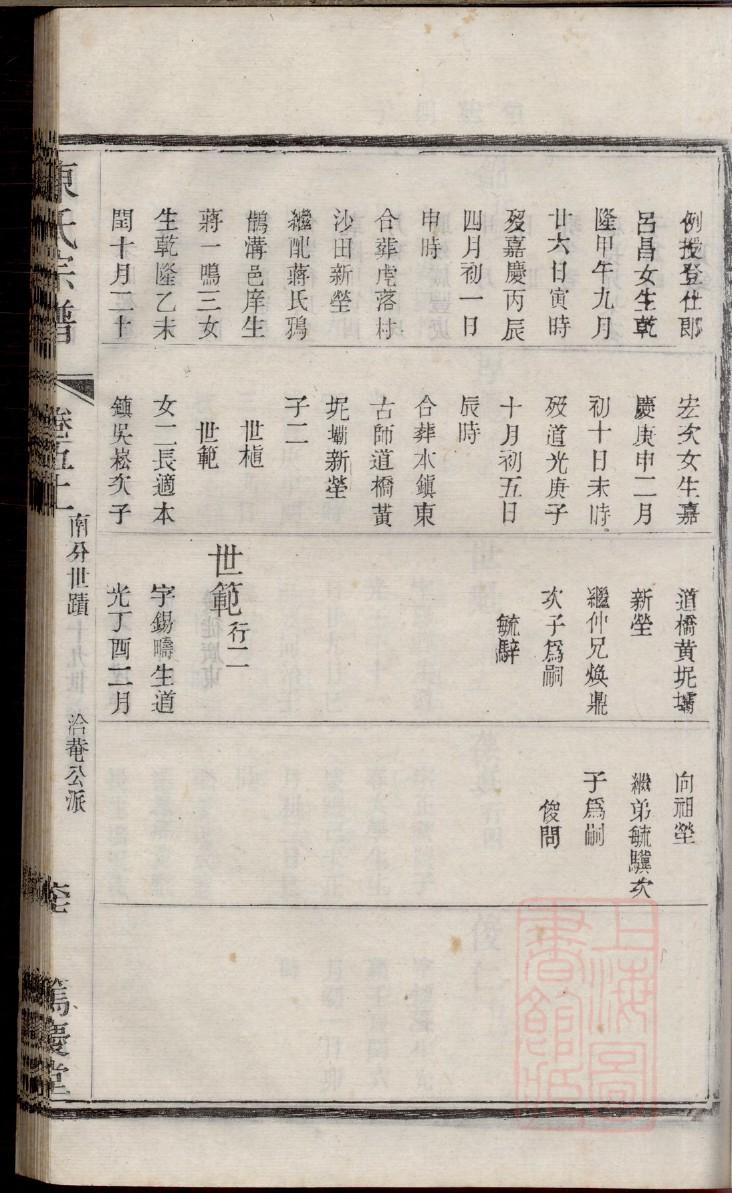 例授登仕郎
呂昌女生乾
隆甲午九月
廿六日寅時
歿嘉慶丙辰
四月初一日
申時
合葬虎落村
沙田新塋
繼配蔣氏鴉
鵲溝邑庠生
蔣一鳴三女
生乾隆乙未
閏十月二十
宏次女生嘉
慶庚申二月
初十日未時
歿道光庚子
十月初五日
辰時
合葬本鎮東
古師道橋黃
坭壩新塋
子二
世植
世範
女二長適本
鎮吳崧次子
道橋黃坭壩
新塋
繼仲兄煥鼎
次子爲嗣
毓騂
世範 行二
字錫疇生道
光丁酉二月
向祖塋
繼弟毓驥次
子爲嗣
俊問
陳氏宗譜
卷五上
南分世蹟 十九世
洽菴公派
篤慶堂
上海圖書館藏